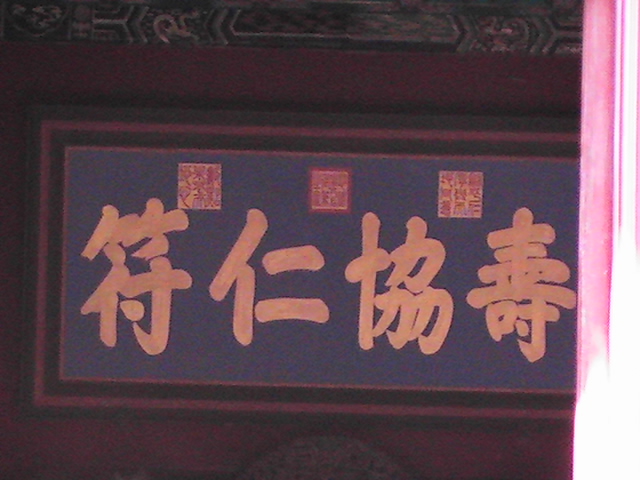 壽協仁符